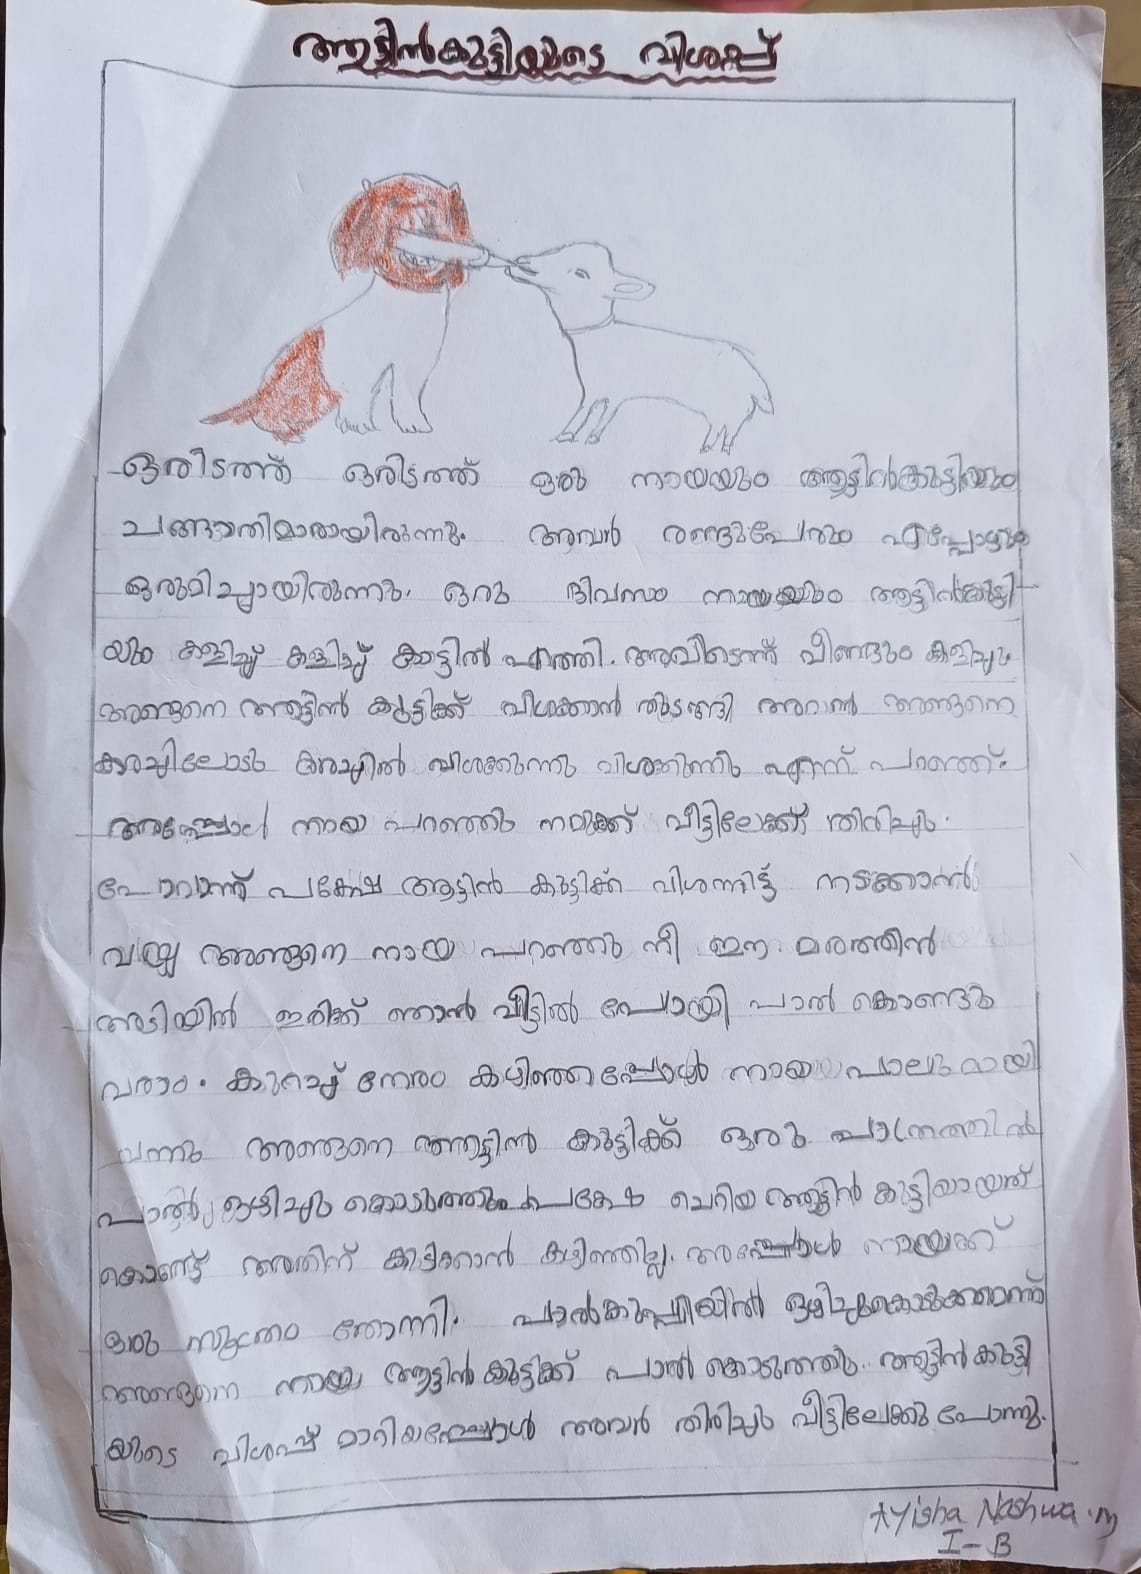 ആട്ടിൻകുട്ടിയുടെ വിശപ്പ്
ഒരിടത്ത് ഒരിടത്ത് ഒരു നായയും ആട്ടിൻകുട്ടിയും
ചങ്ങാതിമാരായിരുന്നു. അവർ രണ്ടുപേരും എപ്പോഴും
ഒരുമിച്ചായിരുന്നു. ഒരു ദിവസം നായയും ആട്ടിൻകുട്ടി
യും കളിച്ച് കളിച്ച് കാട്ടിൽ എത്തി. അവിടെന്ന് വീണ്ടും കളിച്ചു
അങ്ങനെ ആട്ടിൻ കുട്ടിക്ക് വിശക്കാൻ തുടങ്ങി അവൻ അങ്ങനെ
കരച്ചിലോടു കരച്ചിൽ വിശക്കുന്നു വിശക്കുന്നു എന്ന് പറഞ്ഞ്.
അപ്പോൾ നായ പറഞ്ഞു നമുക്ക് വീട്ടിലേക്ക് തിരിച്ചു
പോവാന്ന് പക്ഷേ ആട്ടിൻ കുട്ടിക്ക് വിശന്നിട്ട് നടക്കാൻ
വയ്യ അങ്ങനെ നായ പറഞ്ഞു നീ ഈ മരത്തിൻ
അടിയിൽ ഇരിക്ക് ഞാൻ വീട്ടിൽ പോയി പാൽ കൊണ്ടു
വരാം. കുറച്ച് നേരം കഴിഞ്ഞപ്പോൾ നായ പാലുമായി
വന്നു അങ്ങനെ ആട്ടിൻ കുട്ടിക്ക് ഒരു പാത്രത്തിൽ
പാൽ ഒഴിച്ചു കൊടുത്തു പക്ഷേ ചെറിയ ആട്ടിൻ കുട്ടിയായത്
കൊണ്ട് അതിന് കുടിക്കാൻ കഴിഞ്ഞില്ല. അപ്പോൾ നായക്ക്
ഒരു സൂത്രം തോന്നി. പാൽകുപ്പിയിൽ ഒഴിച്ചുകൊടുക്കാന്ന്
അങ്ങനെ നായ ആട്ടിൻ കുട്ടിക്ക് പാൽ കൊടുത്തു. ആട്ടിൻ കുട്ടി
യുടെ വിശപ്പ് മാറിയപ്പോൾ അവർ തിരിച്ചു വീട്ടിലേക്കു പോന്നു.
Ayisha Nashwa.m
I-B